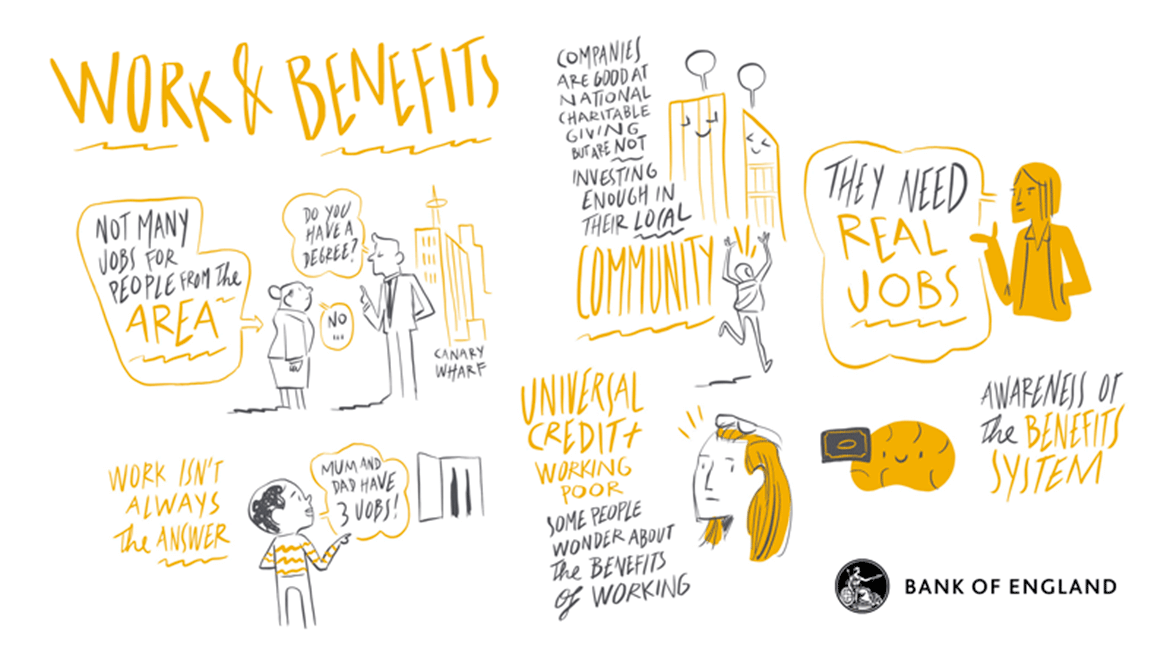 WORK & BENEFITS
NOT MANY
JOBS FOR
PEOPLE FROM the
AREA
DO YOU
HAVE A
DEGREE?
NO
...
CANARY
WHARF
WORK ISN'T
ALWAYS
the ANSWER
MUM AND
DAD HAVE
3 JOBS!
COMPANIES
ARE GOOD AT
NATIONAL
CHARITABLE
GIVING
BUT ARE NOT
INVESTING
ENOUGH IN
THEIR LOCAL
COMMUNITY
THEY NEED
REAL
JOBS
UNIVERSAL
CREDIT+
WORKING
POOR
SOME PEOPLE
WONDER ABOUT
the BENEFITS
of WORKING
AWARENESS OF
the BENEFITS
SYSTEM
BANK OF ENGLAND